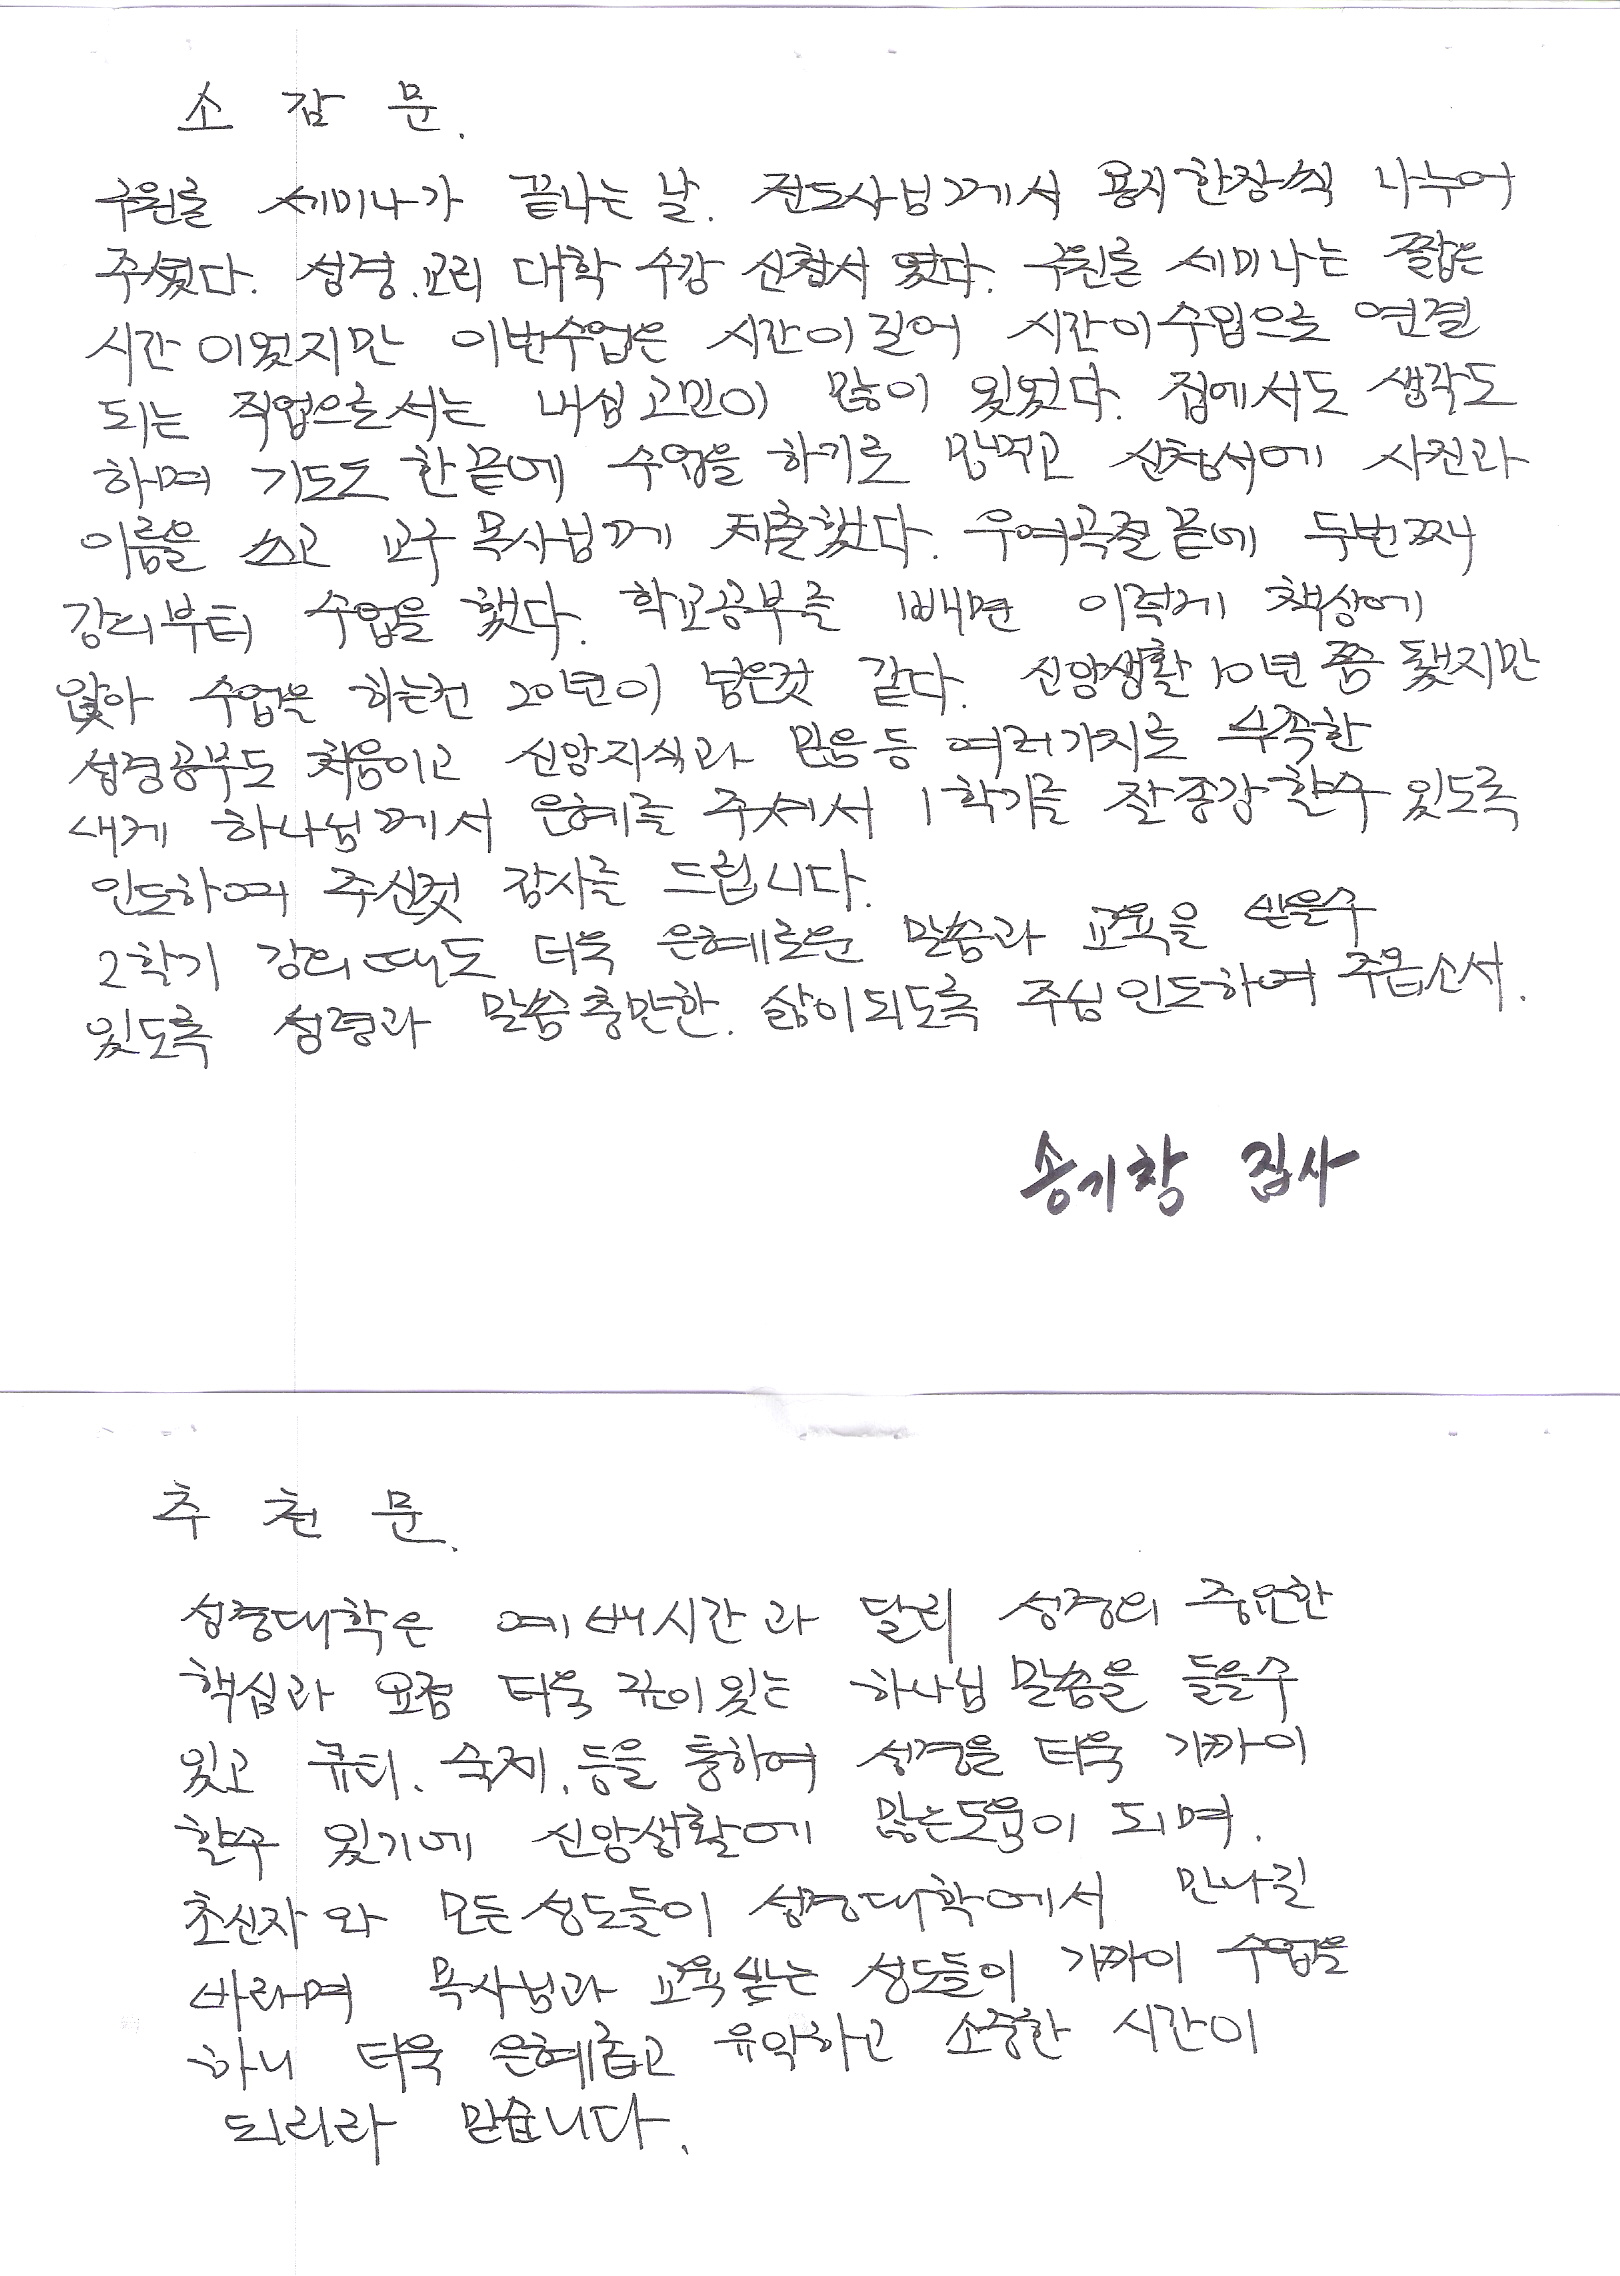 소 감 문.
구원론 세미나가 끝나는 날. 전도사님께서 용지한장씩 나누어
주셨다. 성경.교리 대학 수강 신청서 였다. 구원론 세미나는 짧은
시간 이었지만 이번수업은 시간이길어 시간이수입으로 연결
되는 직업으로서는 내심고민이 많이 있었다. 집에서도 생각도
하며 기도도 한끝에 수업을 하기로 맘먹고 신청서에 사진과
이름을 쓰고 교구 목사님께 제출했다. 우여곡절끝에 두번째
강의부터 수업을 했다. 학교공부를 빼면 이렇게 책상에
앉아 수업을 하는건 20년이 넘은것 같다. 신앙생활 10년 쯤 됐지만
성경공부도 처음이고 신앙지식과 믿음 등 여러가지로 부족한
내게 하나님께서 은혜를 주셔서 1학기를 잘종강할수 있도록
인도하여 주신것 감사를 드립니다.
2학기 강의때도 더욱 은혜로운 말씀과 교육을 받을수
있도록 성령과 말씀충만한. 삶이되도록 주님인도하여 주옵소서.
송기창 집사
추 천 문.
성경대학은 예배시간과 달리 성경의 중요한
핵심과 요점 더욱 깊이있는 하나님 말씀을 들을수
있고 큐티. 숙제.등을 통하여 성경을 더욱 가까이
할수 있기에 신앙생활에 많은도움이 되며.
초신자와 모든성도들이 성경대학에서 만나길
바라며 목사님과 교육받는 성도들이 가까이 수업을
하니 더욱 은혜롭고 유익하고 소중한 시간이
되리라 믿습니다.